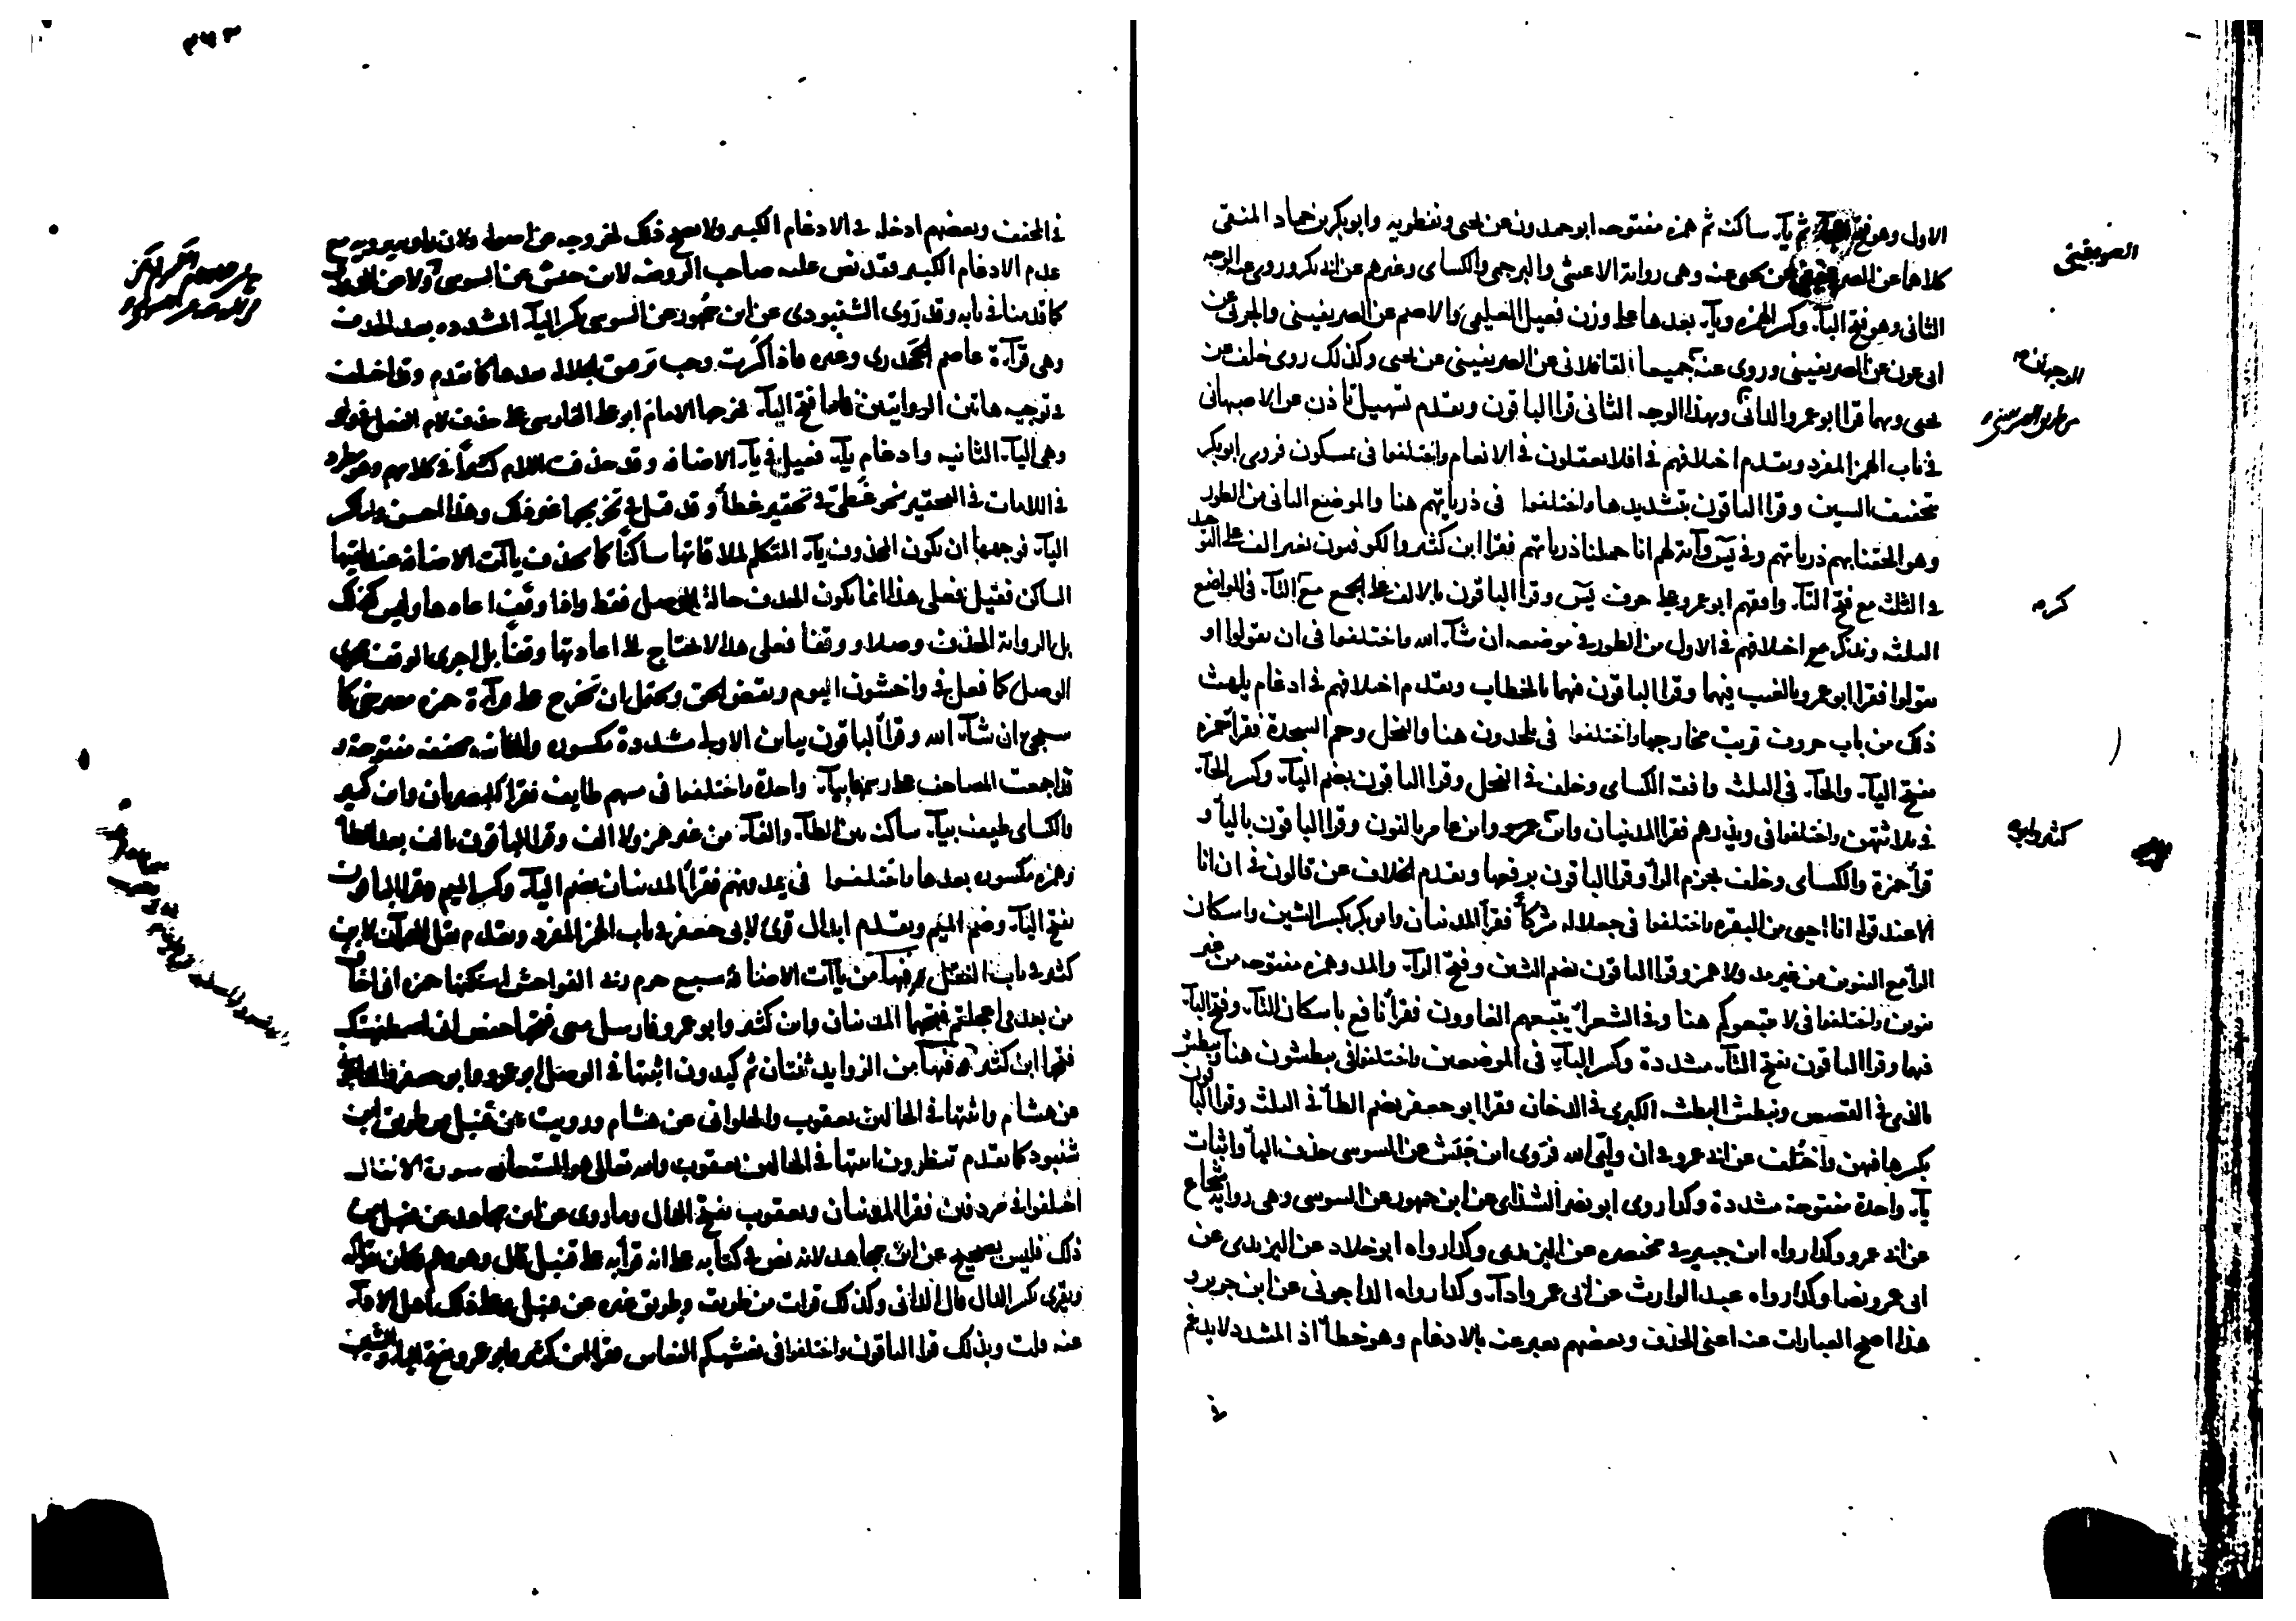 الاول وهو فتح الباء ثم ياء ساكنة ثم همزة مفتوحة ابو حمدون عن يحيى ونفطويه وابو بكر بن حماد المنقى
كلاهما عن الصريفيني عن يحيى عنه وهي رواية الاعشى والبرجمي والكساى وغيرهم عن ابى بكر وروى عنه الوجه
الثانى وهو فتح الباء وكسر الهمزة وياء بعدها على وزن فعيل العليمى والاصم عن الصريفينى والحربى عن
ابى عون عن الصريفينى وروى عنه جميعا القافلانى عن الصريفينى عن يحيى وكذلك روى خلف عن
يحيى وبهما قرا ابو عمرو الدانى وبهذا الوجه الثانى قرا الباقون وتقدم تسهيل تاذن عن الاصبهانى
فى باب الهمز المفرد وتقدم اختلافهم فى افلا يعقلون فى الانعام واختلفوا فى يمسكون فروى ابو بكر
بتخفيف السين وقرا الباقون بتشديدها واختلفوا فى ذرياتهم هنا والموضع الثانى من الطور
وهو الحقنا بهم ذرياتهم وفى يس وآية لهم انا حملنا ذرياتهم فقرا ابن كثير والكوفيون بغير الف على التوحيد
فى الثلثة مع فتح التاء وافقهم ابو عمرو على حرف يس وقرا الباقون بالالف على الجمع مع التاء فى المواضع
الثلثة ونذكر مع اختلافهم فى الاول من الطور فى موضعه ان شاء الله واختلفوا فى ان تقولوا او
تقولوا فقرا ابو عمرو بالغيب فيهما وقرا الباقون فيهما بالخطاب وتقدم اختلافهم فى ادغام يلهث
ذلك من باب حروف قربت مخارجها واختلفوا فى يلحدون هنا والنحل وحم السجدة فقرا حمزة
بفتح الياء والحاء فى الثلثة وافقه الكساى وخلف فى النحل وقرا الباقون بضم الياء وكسر الحاء
فى ثلاثتهن واختلفوا فى ويذرهم فقرا المدنيان وابن وابن عامر بالنون وقرا الباقون بالياء و
قرأ حمزة والكساى وخلف بجزم الراء وقرا الباقون برفعها وتقدم الخلاف عن قالون فى ان انا
الا عند قوله انا احيى من البقرة واختلفوا فى جعلا له شركاء فقرأ المدنيان وابو بكر بكسر الشين واسكان
الرا مع التنوين من غير مد ولا همز وقرا الباقون بضم الشين وفتح الراء والمد وهمزة مفتوحة من غير
تنوين واختلفوا فى لا يتبعوكم هنا وفى الشعرا يتبعهم الغاوون فقرأ نافع باسكان التاء وفتح الباء
فيهما وقرا الباقون بفتح التاء مشددة وكسر الباء فى الموضعين واختلفوا فى يبطشون هنا ويبطش
بالذى فى القصص ونبطش البطشة الكبرى فى الدخان فقرا ابو جعفر بضم الطاء فى الثلثة وقرا الباقون
بكسرها فيهن واختلف عن ابى عمرو فى ان وليى الله فروى ابن حبش عن السوسى حذف الياء واثبات
ياء واحدة مفتوحة مشددة وكذا روى ابو نصر الشذاى عن ابن جمهور عن السوسى وهى رواية شجاع
عن ابى عمرو وكذا رواه ابن جبير فى مختصره عن اليزيدى وكذا رواه ابو خلاد عن اليزيدى عن
ابى عمرو نصا وكذا رواه عبد الوارث عن ابى عمرو اداء وكذا رواه الداجونى عن ابن جرير و
هذا اصح العبارات عنه اعنى الحذف وبعضهم يعبر عنه بالادغام وهو خطأ اذ المشدد لا يدغم
فى
الصريفينى
الوجهان
كره
٣٦٣
فى المخفف وبعضهم ادخله فى الادغام الكبير ولا يصح ذلك لخروجه عن اصوله ولان راويه يرويه مع
عدم الادغام الكبير فقد نص عليه صاحب الروضة لابن حبش عن السوسى ولا من
كما قدمنا فى بابه وقد روى الشنبوذى عن ابن جمهور عن السوسى بكسر الياء المشددة بعد الحذف
وهى قراءة عاصم الجحدرى وغيره فاذا كسرت وجب ترقيق الجلالة بعدها كما تقدم وقد اختلف
فى توجيه هاتين الروايتين فاما فتح الياء فخرجها الامام ابو على الفارسى على حذف لام الفعل فى ولى
وهى الياء الثانية وادغام ياء فعيل فى ياء الاضافة وقد حذفت اللام كثيرا فى كلامهم وهو مطرد
فى اللامات فى التحقير نحو غطى فى تحقير غطاء وقد قيل فى تخريجها غير ذلك وهذا احسن واما كسر
الياء فوجهها ان يكون المحذوف ياء المتكلم لملاقاتها ساكنا كما تحذف ياآت الاضافة عند لقيها
الساكن فقيل فعلى هذا انما يكون الحذف حالة الوصل فقط واذا وقف اعادها وليس كذلك
بل الرواية الحذف وصلا ووقفا فعلى هذا لا يحتاج الى اعادتها وقفا بل اجرى الوقف مجرى
الوصل كما فعل فى واخشون اليوم ويقض الحق ويحتمل ان تخرج على قراءة حمزة مصرخى كما
سيجى ان شاء الله وقرأ الباقون بياءين الاولى مشددة مكسورة والثانية مخففة مفتوحة و
قد اجمعت المصاحف على رسمها بياء واحدة واختلفوا فى مسهم طايف فقرا البصريان وابن كثير
والكساى طيف بياء ساكنة بين الطاء والفاء من غير همز ولا الف وقرا الباقون بالف بعد الطاء
وهمزة مكسورة بعدها واختلفوا فى يمدونهم فقرأ المدنيان بضم الياء وكسر الميم وقرا الباقون
بفتح الياء وضم الميم وتقدم ابدال قرئ لابى جعفر فى باب الهمز المفرد وتقدم نقل القرآن لابن
كثير فى باب النقل وفيها من ياآت الاضافة سبع حرم ربى الفواحش اسكنها حمزة انى اخاف
من بعدى اعجلتم فتحها المدنيان وابن كثير وابو عمرو فارسل معى فتحها حفص انى اصطفيتك
فتحها ابن كثير وفيها من الزوايد ثنتان ثم كيدون اثبتها فى الوصل ابو عمرو وابو جعفر والداجونى
عن هشام واثبتها فى الحالين يعقوب والحلوانى عن هشام ورويت عن قنبل من طريق ابن
شنبوذ كما تقدم تنظرون اثبتها فى الحالين يعقوب والله تعالى هو المستعان سورة الانفال
اختلفوا فى مردفين فقرا المدنيان ويعقوب بفتح الدال وما روى عن ابن مجاهد عن قنبل من
ذلك فليس بصحيح عن ابن مجاهد لانه نص فى كتابه على انه قرأ به على قنبل قال وهو وهم وكان يقرأ له
ويقرى بكسر الدال قال الدانى وكذلك قرات من طريقه وطريق غيره عن قنبل وعلى ذلك اهل الاداء
عنه قلت وبذلك قرا الباقون واختلفوا فى يغشيكم النعاس فقرا ابن كثير وابو عمرو بفتح الياء والشين